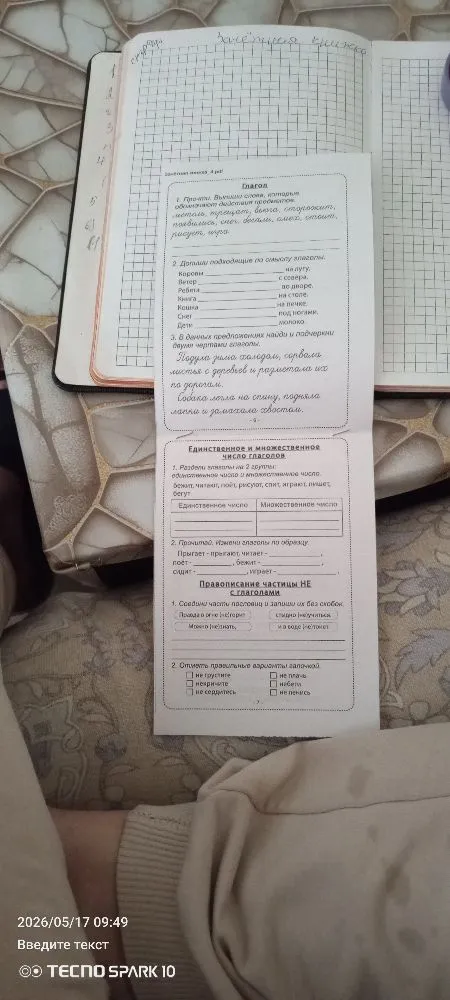 Зачётная книжка
Зачётная книжка_4.pdf
Глагол
1. Прочти. Выпиши слова, которые
обозначают действия предметов.
метель, трещат, вьюга, сторожит,
появились, снег, бегаль, смех, стоит,
рисует, игра
2. Допиши подходящие по смыслу глаголы.
Коровы ____________ на лугу.
Ветер ____________ с севера.
Ребята ____________ во дворе.
Книга ____________ на столе.
Кошка ____________ на печке.
Снег ____________ под ногами.
Дети ____________ молоко.
3. В данных предложениях найди и подчеркни
двумя чертами глаголы.
Подула зима холодом, сорвала
листья с деревьев и разметала их
по дорогам.
Собака легла на спину, подняла
лапки и замахала хвостом.
- 6 -
Единственное и множественное
число глаголов
1. Раздели глаголы на 2 группы:
единственное число и множественное число.
бежит, читают, поёт, рисуют, спит, играют, пишет,
бегут
Единственное число Множественное число
2. Прочитай. Измени глаголы по образцу.
Прыгает - прыгают, читает - __________,
поёт - __________, бежит - __________,
сидит - __________, играет - __________.
Правописание частицы НЕ
с глаголами
1. Соедини части пословиц и запиши их без скобок.
Правда в огне (не)горит стыдно (не)учиться.
Можно (не)знать, и в воде (не)тонет.
2. Отметь правильные варианты галочкой.
не грустите не плачь
некричите небеги
не сердитесь не ленись
- 7 -
2026/05/17 09:49
Введите текст
TECNO SPARK 10